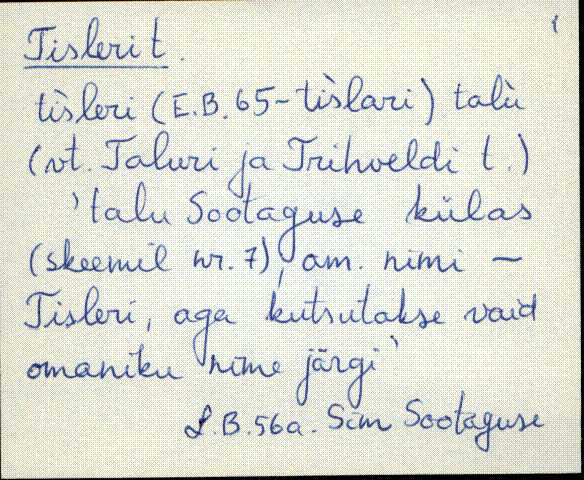 Tisleri t.
tìsleri (E.B. 65 - tìslari) talù
(vt. Taluri ja Trihveldi t.)
'talu Sootaguse külas
(skeemil nr. 7), am. nimi -
Tisleri, aga kutsutakse vaid
omaniku nime järgi'
L.B. 56a. Sim Sootaguse